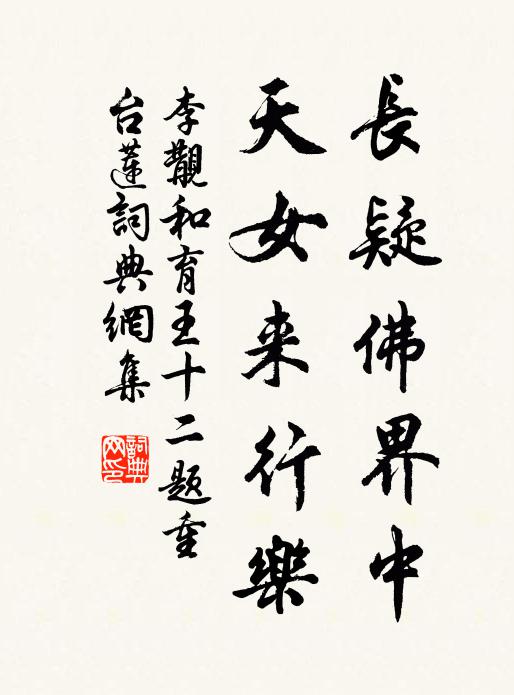 長疑佛界中
天女来行樂
李覯和育王十二题重
台蓮詞典網集
詞典网印